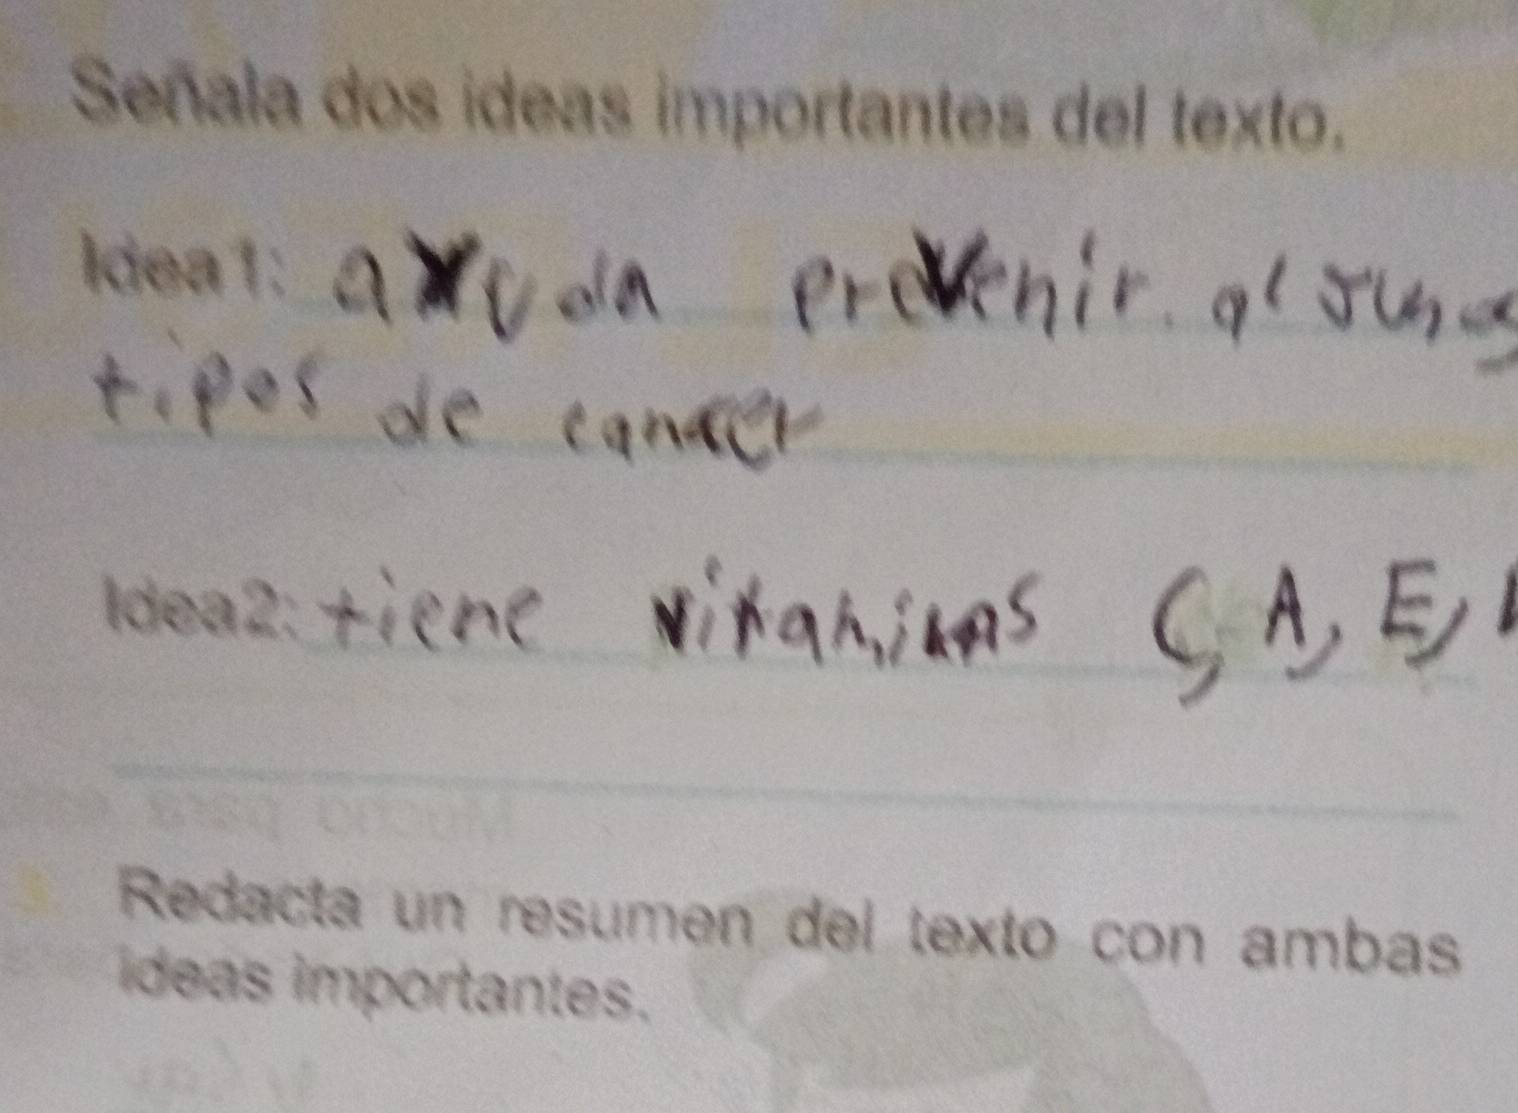 Señala dos ideas importantes del texto.
Idea1: ayuda prevenir algunos
tipos de cancer
Idea2: tiene vitaminas C, A, E,
3. Redacta un resumen del texto con ambas
ideas importantes.